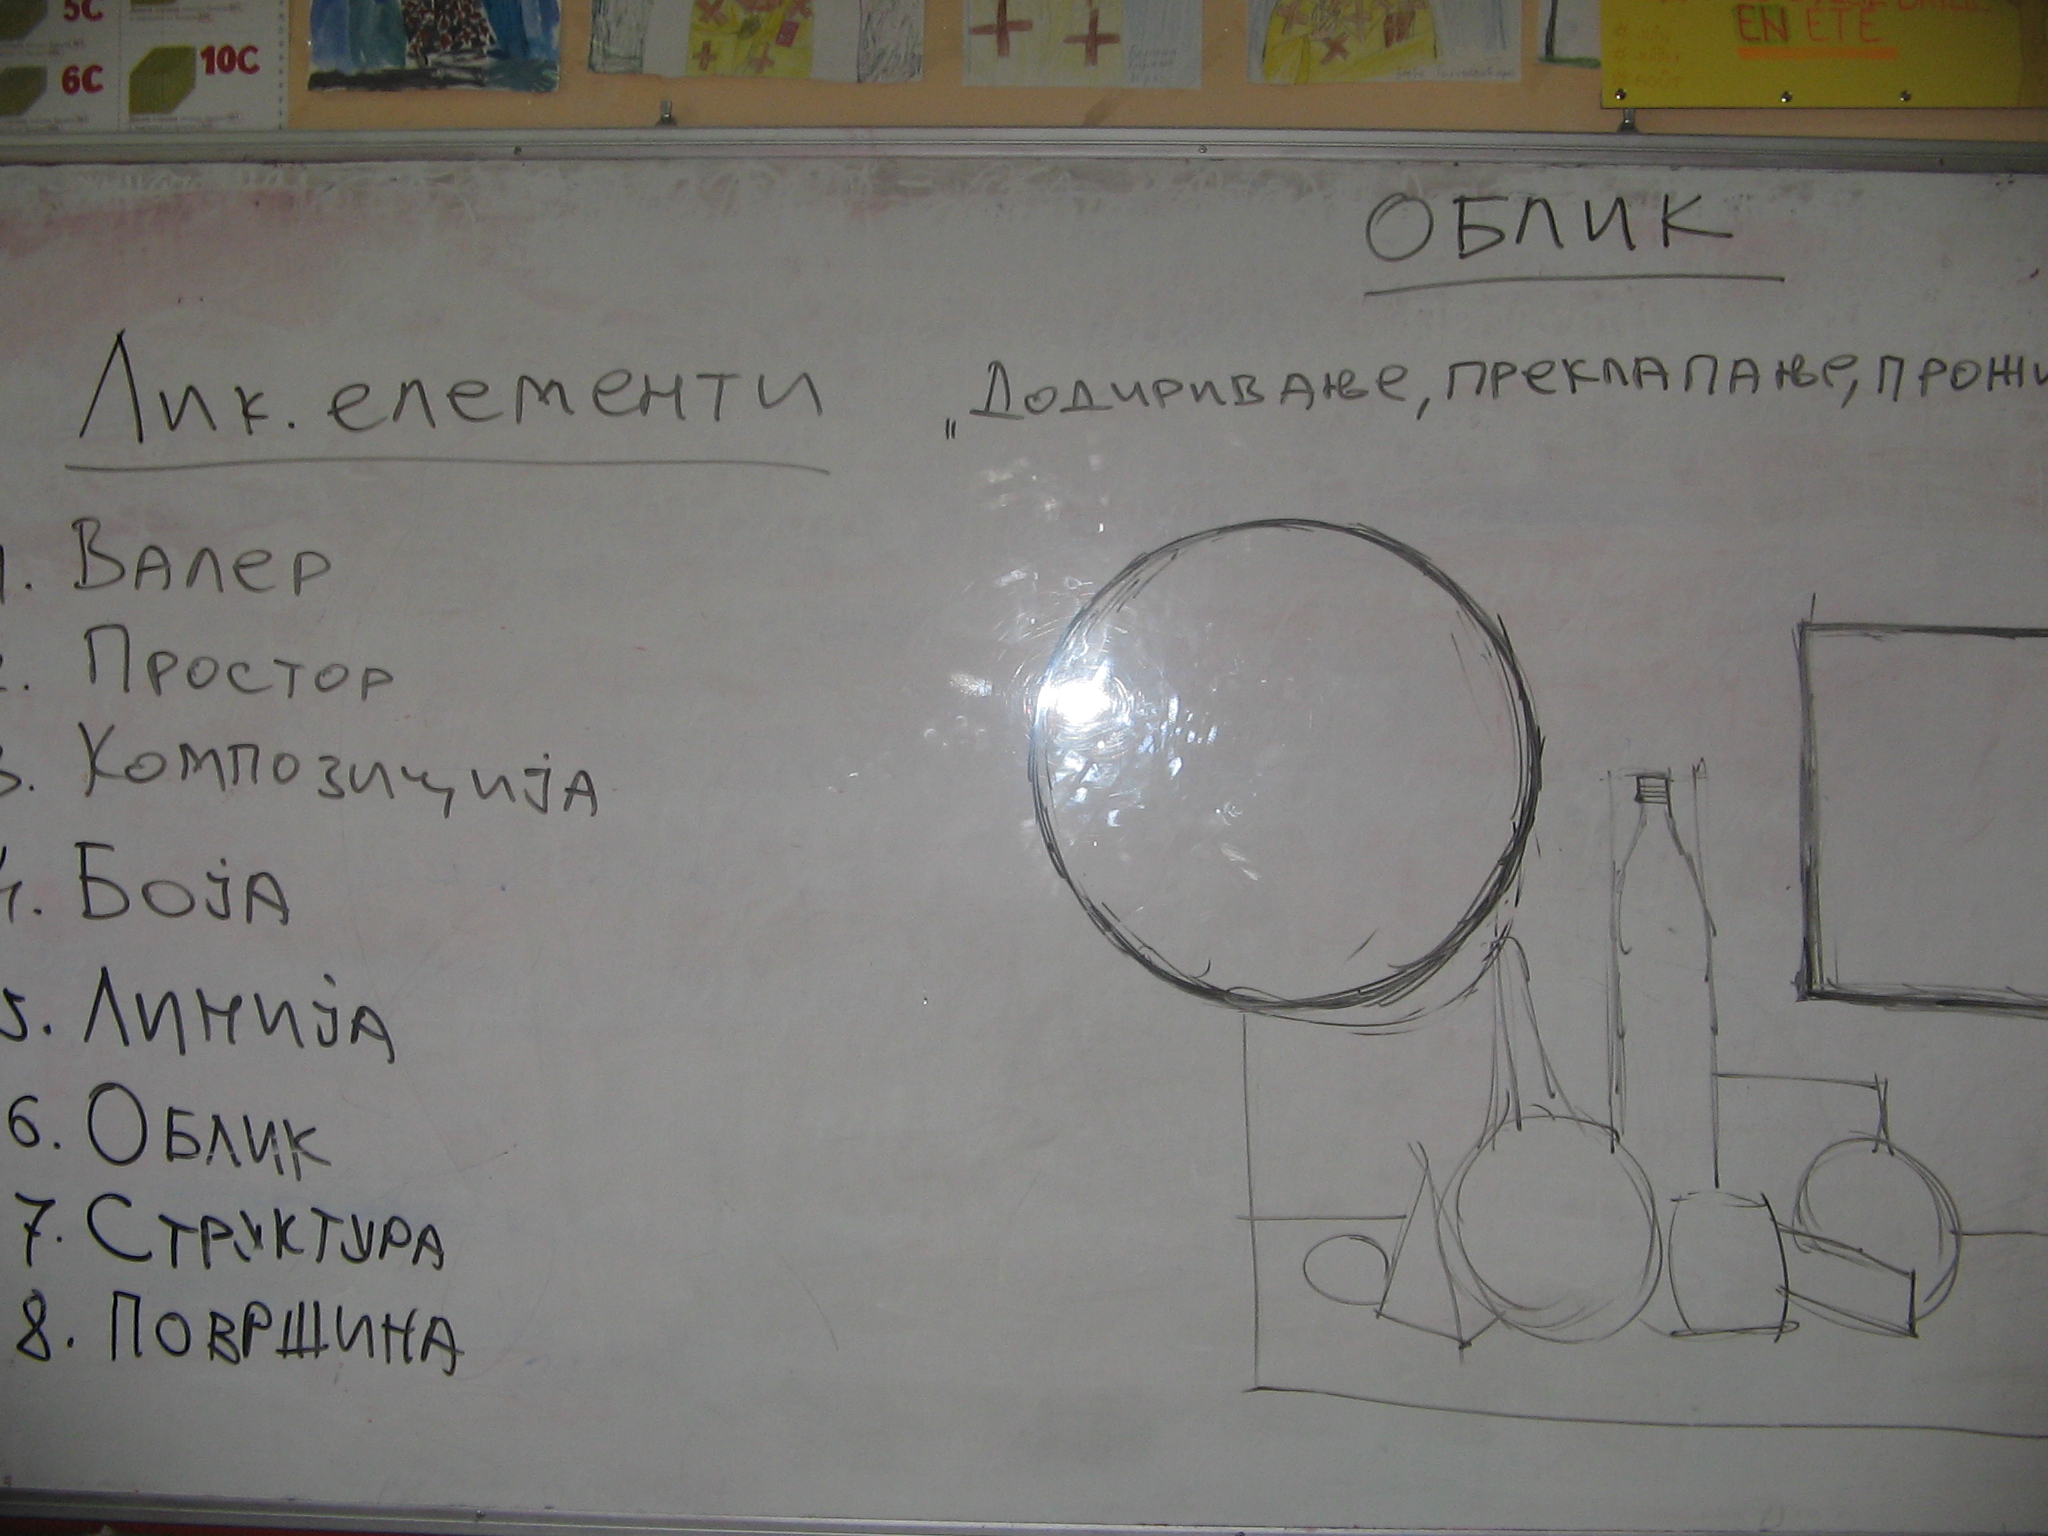 5C
6C
10C
EN ETE
ОБЛИК
Лик. елементи
„Додиривање, преклапање, прожи
1. Валер
2. Простор
3. Композиција
4. Боја
5. Линија
6. Облик
7. Структура
8. Површина